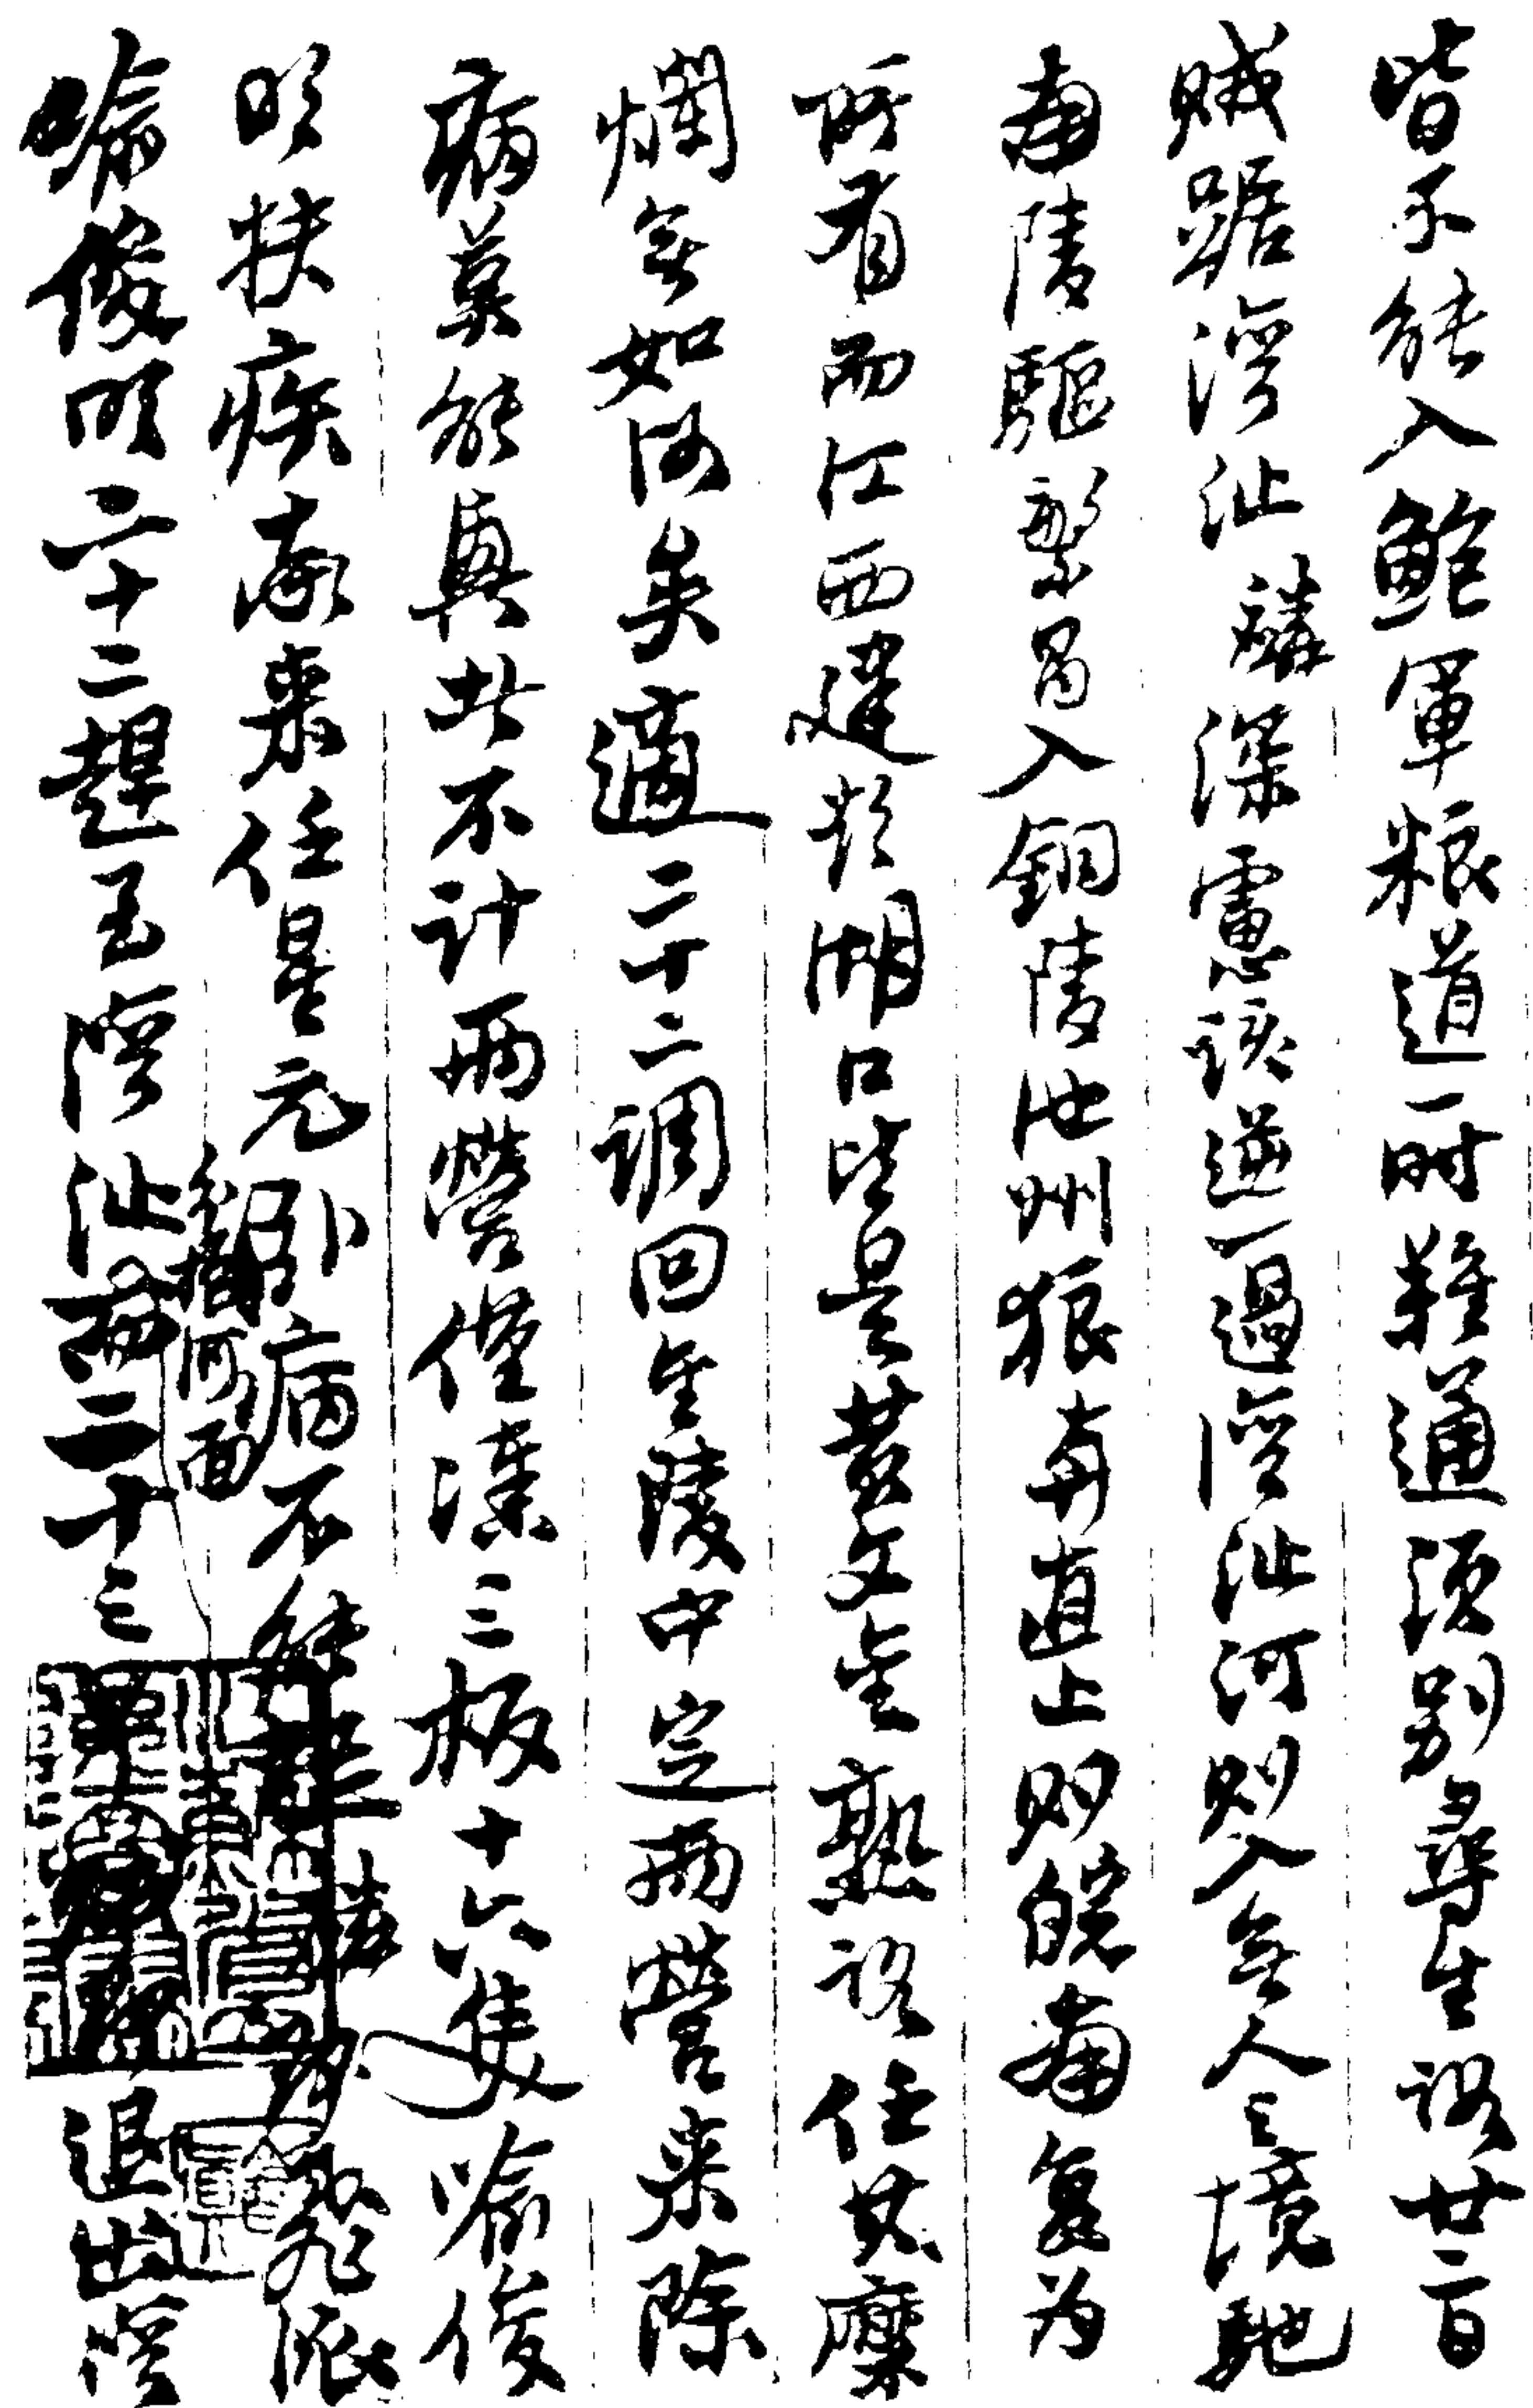 皆不能入鮑軍粮道一时難通須别尋生路廿二日
贼踞灣沚麟深慮該逆一過灣沚河則入無人之境馳
南陵驅繁昌入銅陵池州狼奔直上則皖南复为
所有而江西建彭湖口皆是黄文金熟路任其糜
爛無如何矣適二十二調回金陵中定兩營来除
病莫能興者不計兩營僅湊三板十六隻喻俊
明扶疾南来任星元卧病不能
喻俊明二十二趕至灣沚
河面
二十三
退出灣